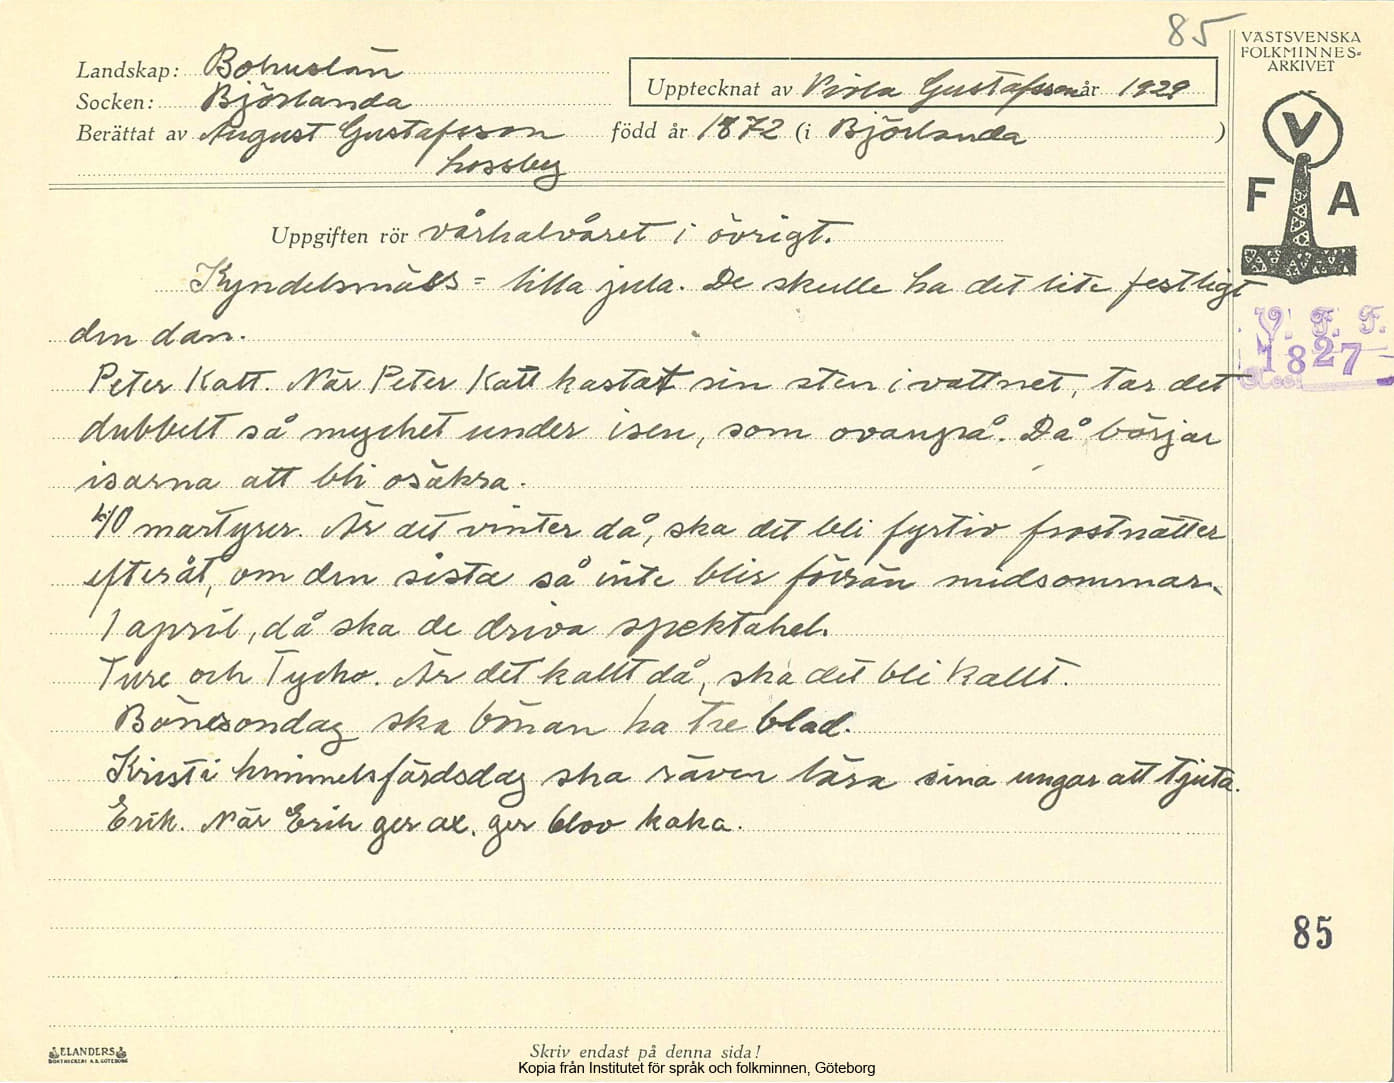 85
VÄSTSVENSKA
FOLKMINNES-
ARKIVET
Landskap: Bohuslän
Upptecknat av Viola Gustafsson år 1929
Socken: Björlanda
Berättat av August Gustafsson född år 1872 (i Björlanda )
Lossby
V
F A
Uppgiften rör vårhalvåret i övrigt.
Kyndelsmäss = lilla jula. De skulle ha det lite festligt
den dan.
V. F. F.
1827
Peter Katt. När Peter Katt kastat sin sten i vattnet, tar det
dubbelt så mycket under isen, som ovanpå. Då börjar
isarna att bli osäkra.
40 martyrer. Är det vinter då, ska det bli fyrtio frostnätter
efteråt, om den sista så inte blir förrän midsommar.
1 april, då ska de driva spektakel.
Ture och Tycho. Är det kallt då, ska det bli kallt.
Bönsöndag ska bönan ha tre blad.
Kristi himmelsfärdsdag ska räven lära sina ungar att tjuta.
Erik. När Erik ger ax, ger Olov kaka.
85
ELANDERS
BOKTRYCKERI A.B. GÖTEBORG
Skriv endast på denna sida!
Kopia från Institutet för språk och folkminnen, Göteborg